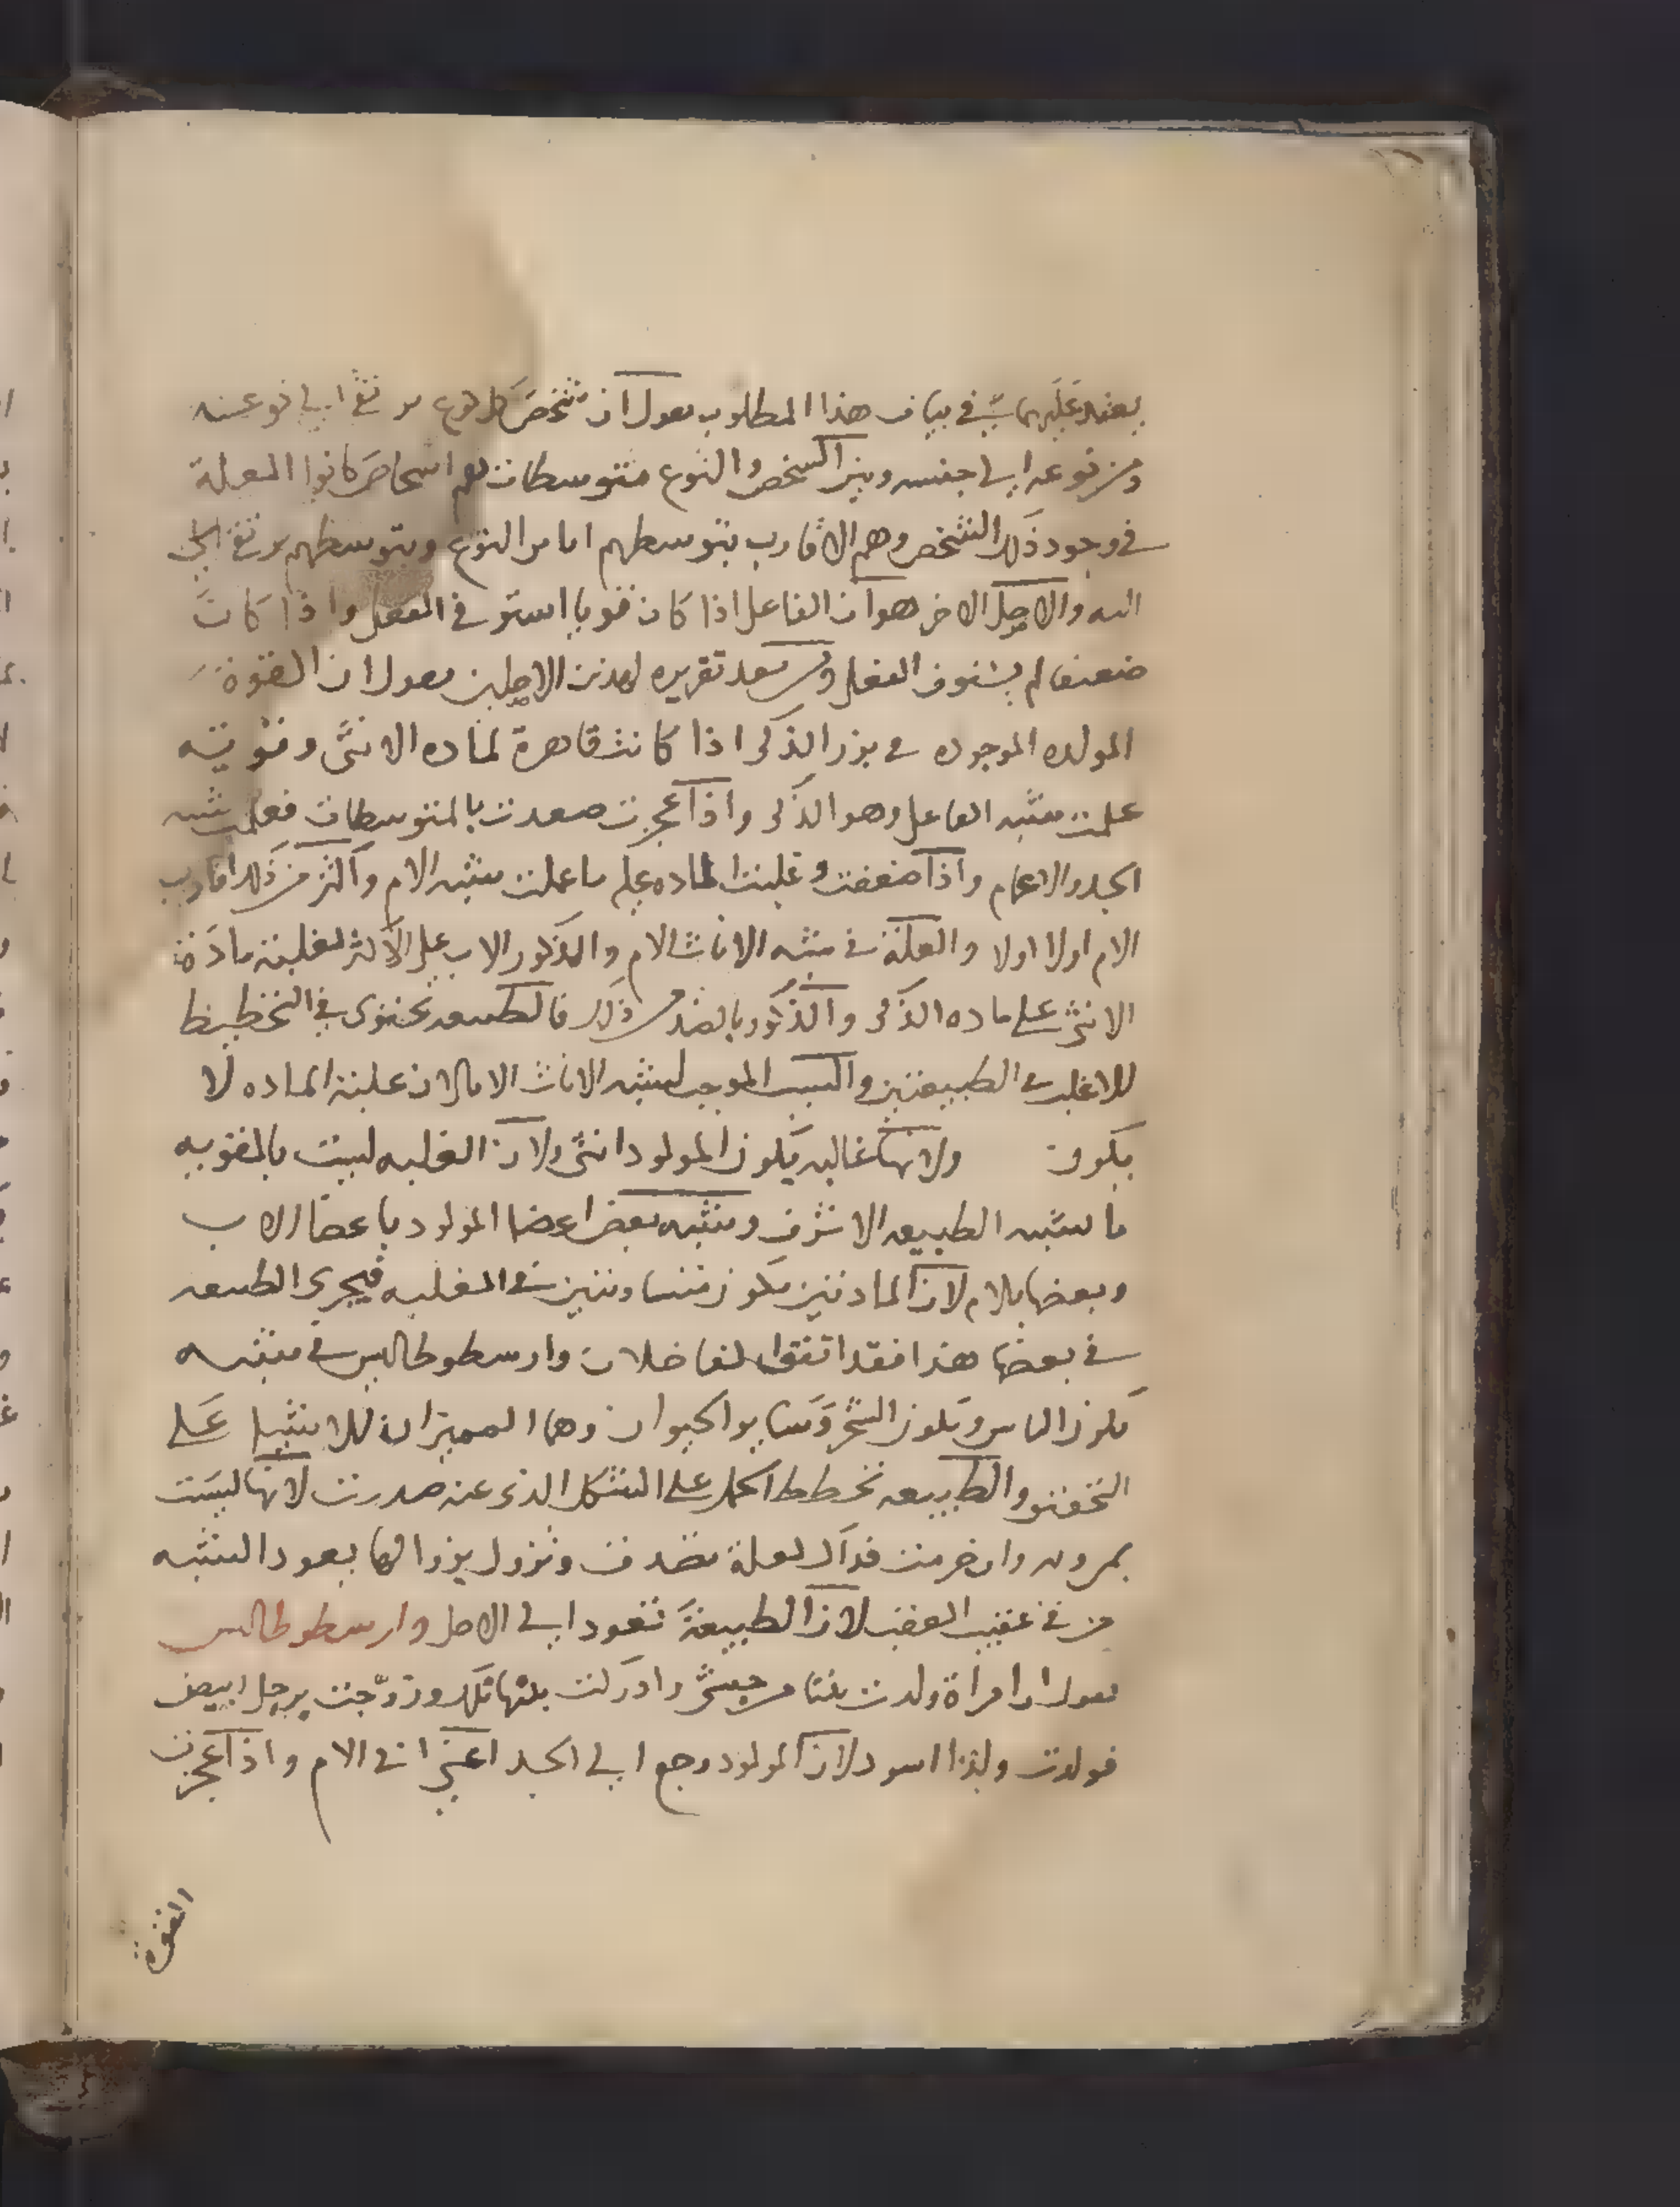 يعتمد عليهما في بيان هذا المطلوب يقول ان شخص كل نوع يرتقى الى نوعيته
ومن نوعه الى جنسه وبين الشخص والنوع متوسطات هم اشخاص كانوا العلة
في وجود ذلك الشخص وهم الاقارب بتوسطهم اما من النوع وبتوسطهم يرتقى
اليه والاصل الاخر هو ان الفاعل اذا كان قويا استوفى الفعل واذا كان
ضعيفا لم يستوف الفعل ومن بعد تقريره لهذين الاصلين يقول ان القوة
المولده الموجوده في بزر الذكر اذا كانت قاهرة لماده الانثى وقويته
عملت شبه الفاعل وهو الذكر واذا عجزت صعدت بالمتوسطات فعملت شبه
الجد والاعمام واذا ضعفت وغلبت الماده على ما عملت شبه الام واكثر من ذلك اقارب
الام اولا اولا والعلة في شبه الاناث الام والذكور الاب على الاكثر لغلبة مادة
الانثى على ماده الذكر والذكور بالضد من ذلك فالطبيعه تحتوى في التخطيط
للاغلب في الطبيعتين والسبب الموجب لشبه الاناث الاباء لان غلبة الماده لا
يكون ولانها غالبه يكون المولود انثى ولان الغلبه ليست بالقويه
ما تشبه الطبيعه الاشرف وتشبه بعض اعضا المولود باعضا الاب
وبعضها بالام لان المادتين يكون متساويتين في الغلبه فيجرى الطبيعه
في بعضها هذا فقد اتفق الفاضلان وارسطوطاليس في شبه
يكون الناس ويكون الشجر وساير الحيوان وهما المميزان للاشيا على
والطبيعه تخطط الحمل على الشكل الذى عنه صدرت لانها ليست
وان خرمت فذاك لعلة تضدت وتزول بزوالها يعود الشبه
من في عقيب العقب لان الطبيعة تعود الى الاصل وارسطوطاليس
يقول ان امراة ولدت بنتا من حبشى وادركت بنتها تلك وتزوجت برجل ابيض
فولدت ولدا اسود لان المولود رجع الى الجد اعنى اب الام واذا عجزت
القوة